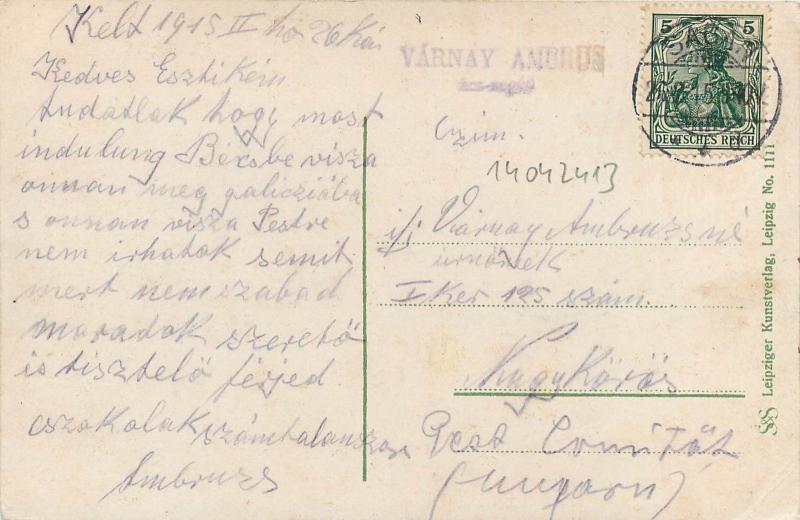 Kelt 1915 II hó 26kán
Kedves Esztikém
tudatlak hogy most
indulung Bécsbe visza
onnan meg galicziába
s onnan visza Pestre
nem irhatok semit
mert nem szabad
maradok szerető
is tisztelő férjed
csokolak számtalanszor
Ambruzs
VÁRNAY AMBRUS
5 5
DEUTSCHES REICH
Czim.
14042413
ifj Várnay Ambruzsné
urnőnek
I Ker 125 szám.
NagyKőrös
Pest Comität
(Hungarn)
Leipziger Kunstverlag, Leipzig No. 1111